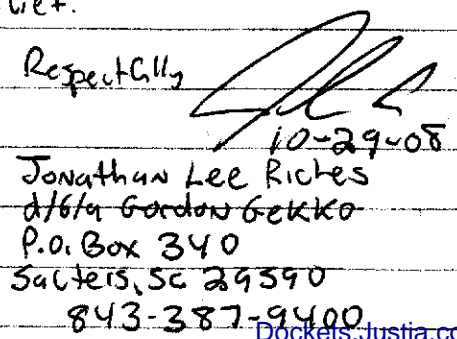 lief.
Respectfully
10-29-08
Jonathan Lee Riches
d/b/a Gordon Gekko
P.O. Box 340
Salters, SC 29590
843-387-9400
Dockets.Justia.co